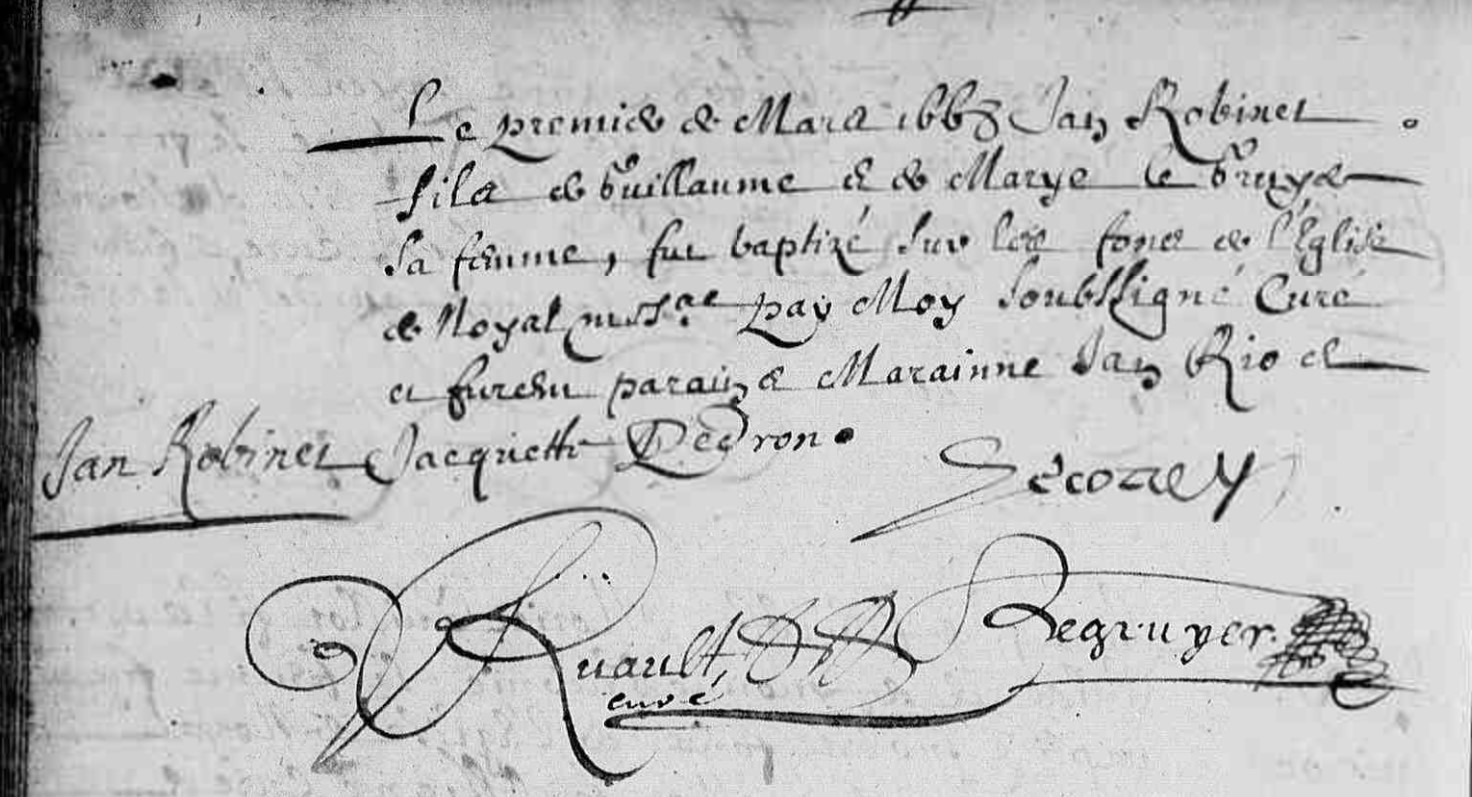 Le premier de Mars 1663 Jan Robinet
fils de Guillaume & de Marye le Gruyer
sa femme, fut baptizé sur les fons de l'Eglise
de Noyal par Moy soubssigné Curé
et furent parain & Marainne Jan Rio et
Jan Robinet Jacquette
Ruault, Legruyer
curé